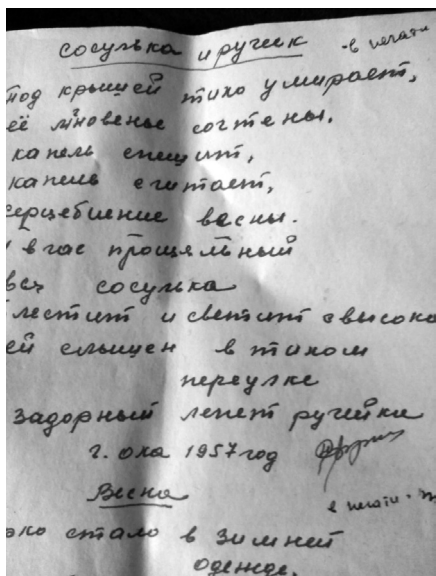 сосулька и ручеек
в печати
под крышей тихо умирает,
её мгновенье сочтены.
капель спешит,
капель считает,
сердцебиение весны.
в час прощальный
вся сосулька
блестит и светит свысока
ей слышен в тихом
переулке
задорный лепет ручейка
г. оха 1957 год
Весна
в печати
стало в зимней
одежде,